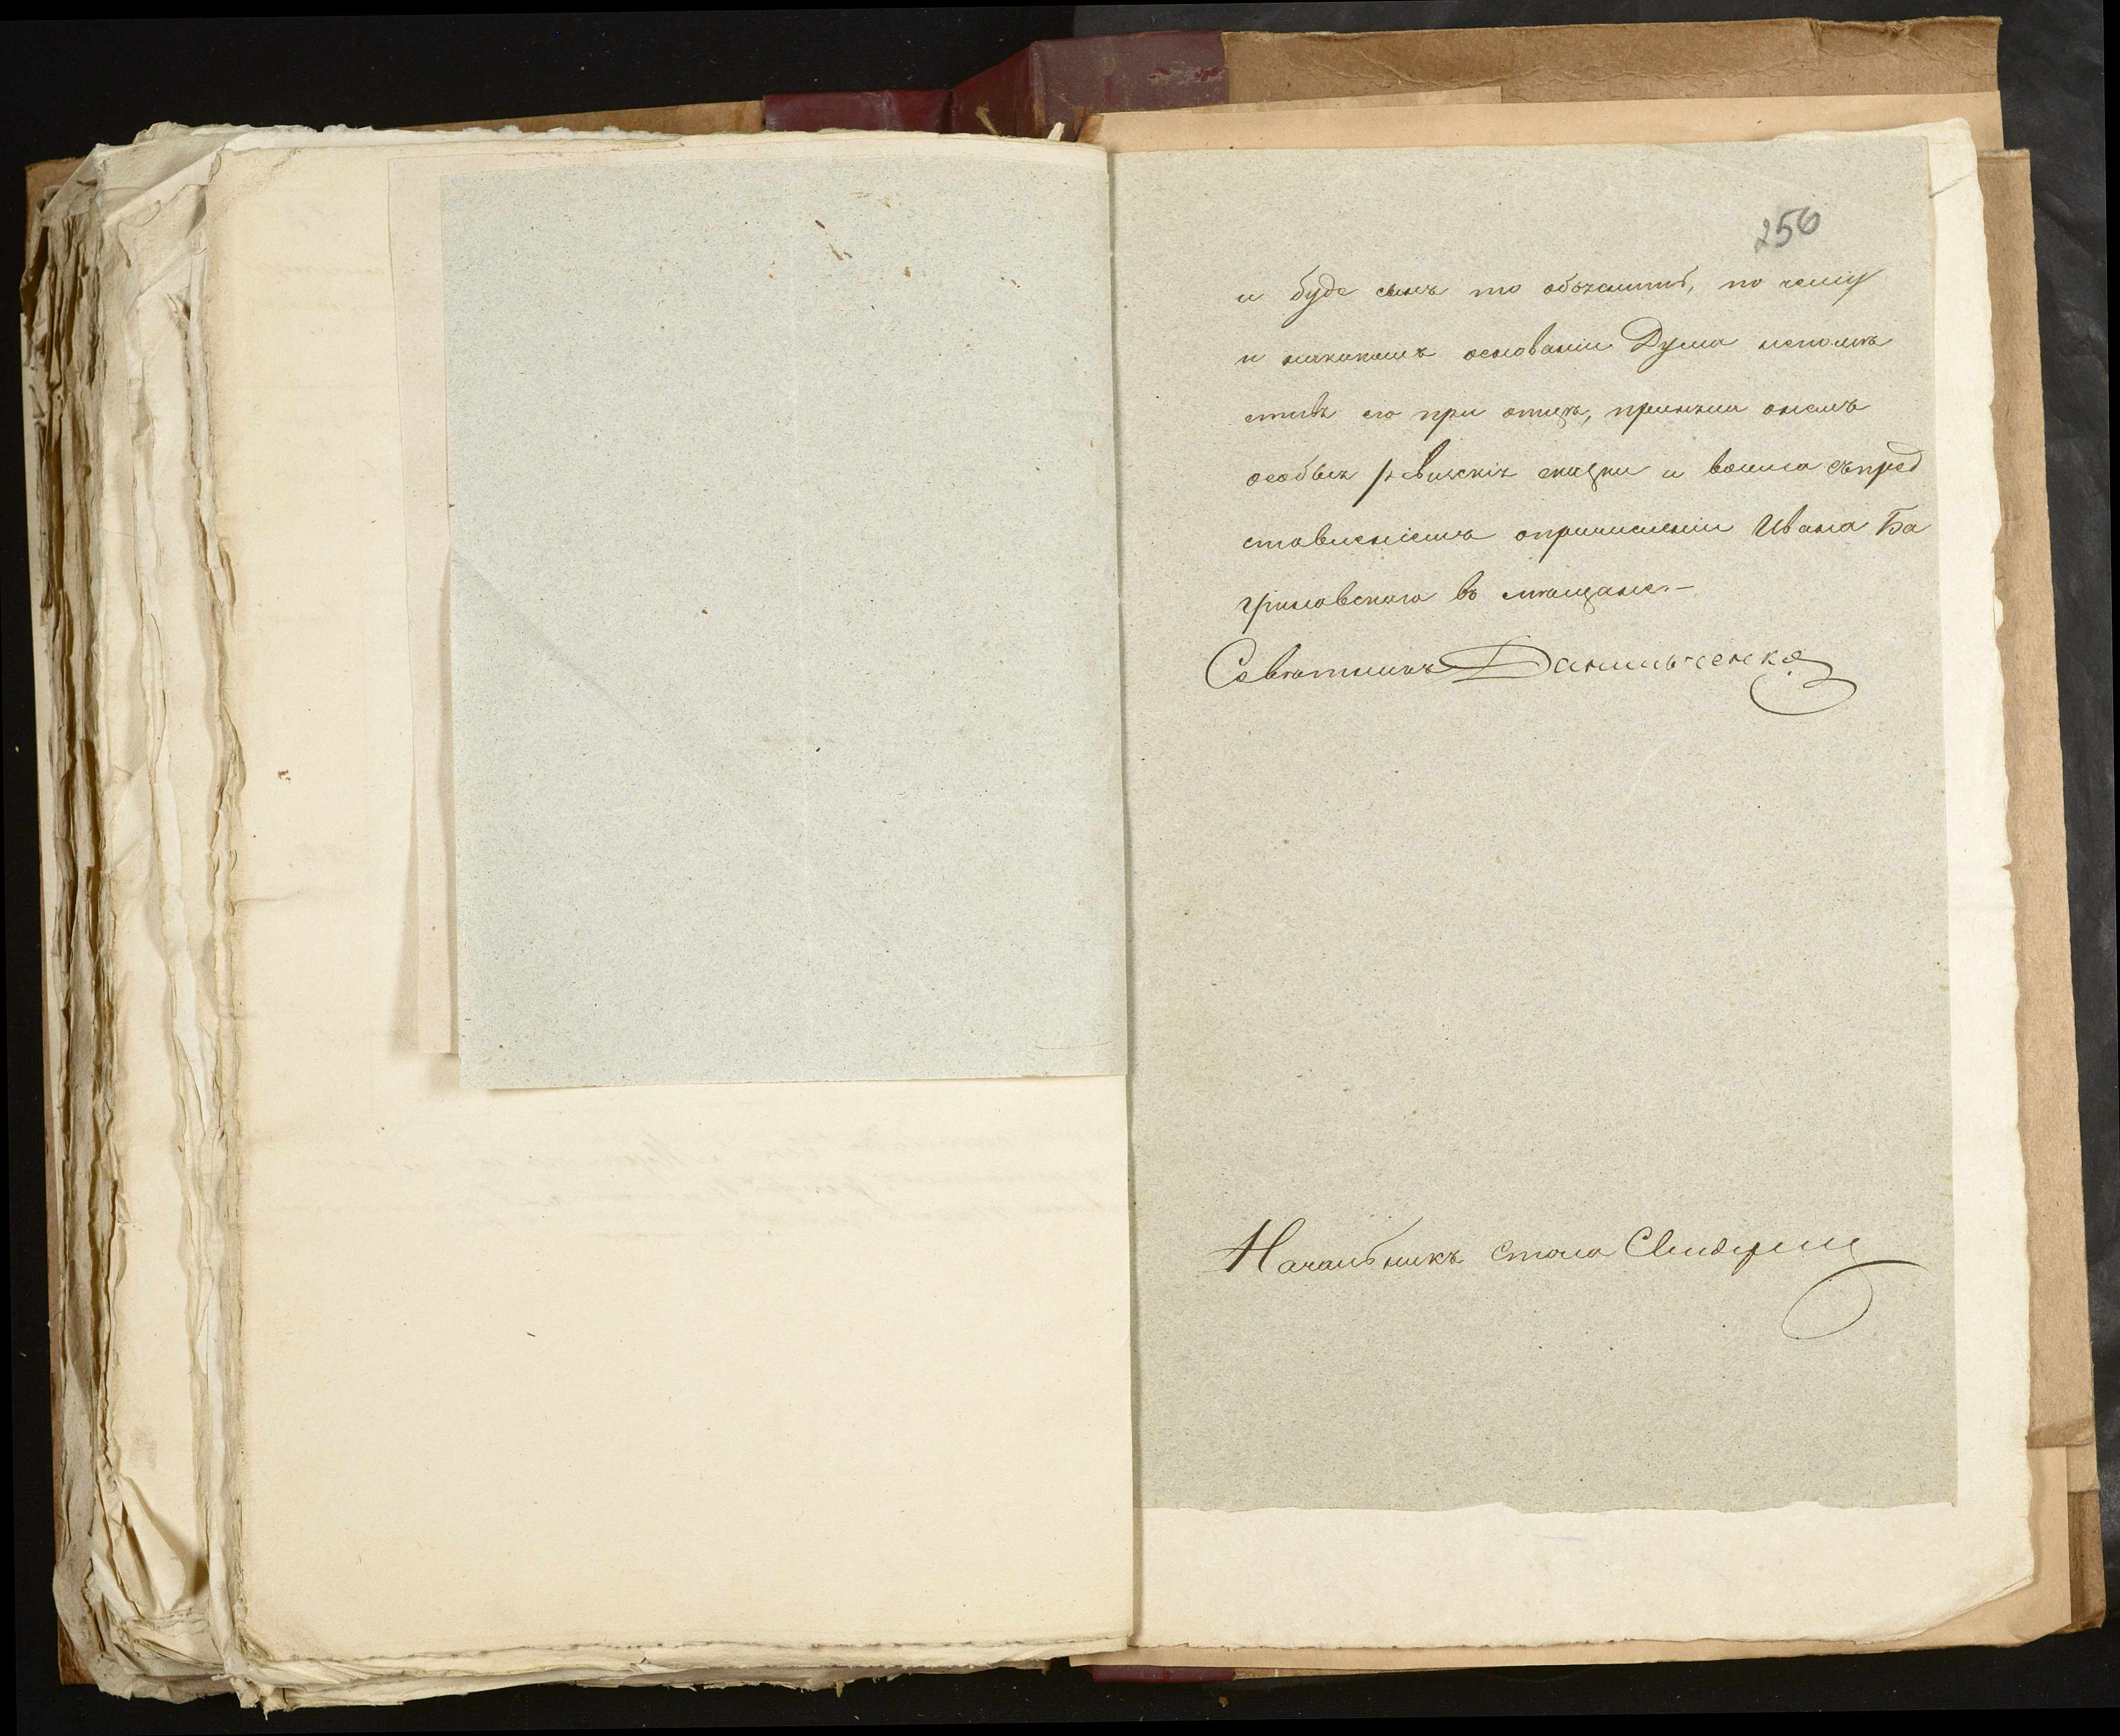 256
и буде сынъ то объяснить, по чему
и накакомъ основаніи Дума непомѣ
стивъ его при отцѣ, приняла онемъ
особыя ревизскія сказки и вошла съпред
ставленіемъ опричисленіи Ивана Ба
гриновскаго въ мѣщане.—
Совѣтникъ Данильченко
Начальникъ Стола